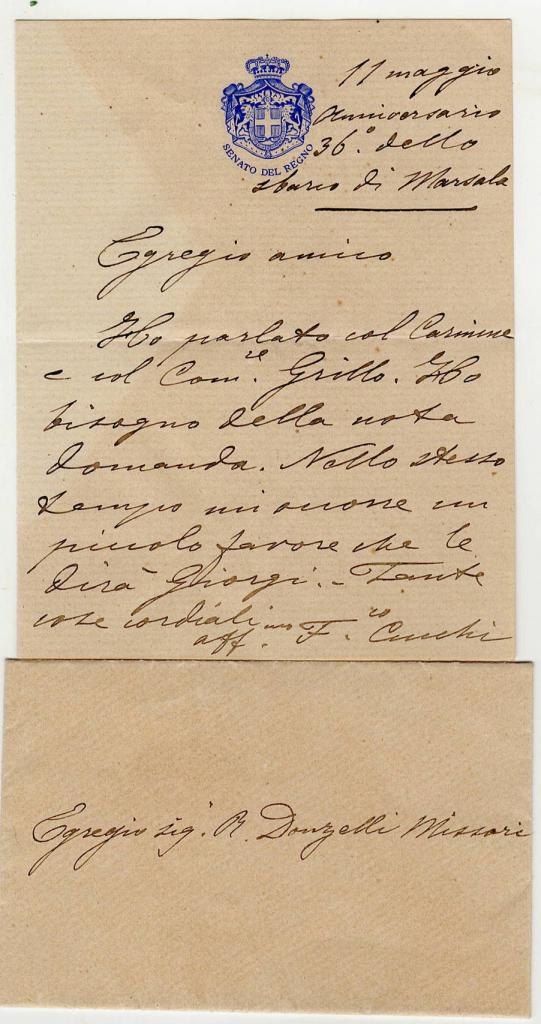 11 maggio
Anniversario
36.º dello
sbarco di Marsala
SENATO DEL REGNO
Egregio amico
Ho parlato col Carimme
e col Com.re Grillo. Ho
bisogno della nota
domanda. Nello stesso
tempo mi occorre un
piccolo favore che le
dirà Giorgi. - Tante
cose cordiali
aff.mo F.co Cucchi
Egregio sig. R. Donzelli Missori